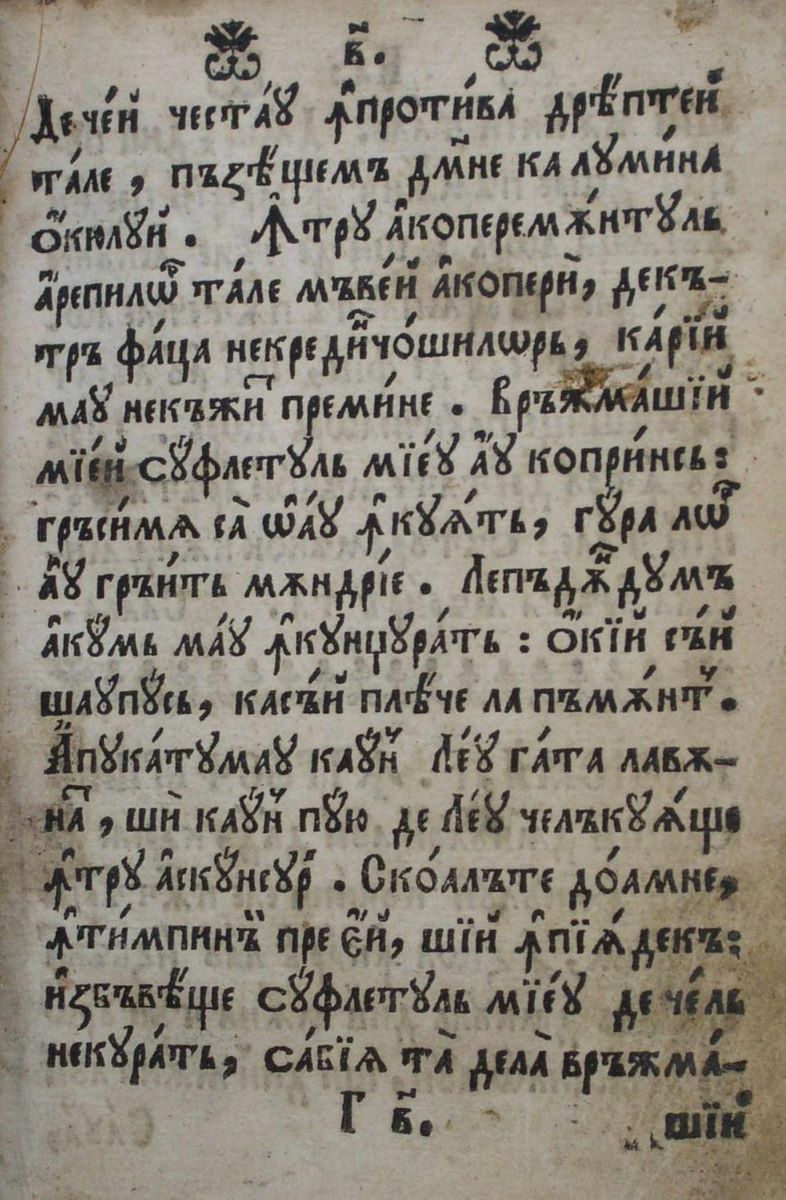 в҃.
Де че́й честа́ꙋ ꙟ҆проти́ва дрѣ́птей
та́ле, пъзѣ́щемъ дм҃не ка лꙋми́на
ѻ҆́кюлꙋй. Ꙟ҆трꙋ а҆коперемѫ́нтꙋль
а҆́репилѡⷬ҇ та́ле мъвѐй а҆копери̂, декъ-
тръ фа́ца некредиⷩ҇чо́шилѡрь, ка́рїй
маꙋ некъжиⷮ премине. Връжма́шїй
мїе́й сꙋ́флетꙋль мїе́ꙋ а҆́ꙋ копри́нсь:
гръси́мѧ са̀ ѡ҆а́ꙋ ꙟ҆кꙋѧ́ть, гꙋ́ра лѡⷬ҇
а҆́ꙋ гръи́ть мѫндрі́е. Лепъдѫ́ⷩ҇дꙋмъ
а҆кꙋ́мь ма́ꙋ ꙟ҆кꙋнџꙋра́ть: ѻ҆́кїй съ́й
шаꙋпꙋ́сь, касъ́й плѣ́че ла пъмѫ́нтꙋ.
А҆пꙋка́тꙋмаꙋ каꙋ́нꙋ Ле́ꙋ га́та лавѫ-
наⷮ, шѝ каꙋ́нꙋ пꙋ́ю де Ле́ꙋ челъкꙋѧ́ще
ꙟ҆трꙋ а҆скꙋ́нсꙋрй. Ско́алъте до́амне,
ꙟ҆ти́мпинъ̏ пре є҆́й, шїй ꙟ҆пїѧ́декъ:
и҆́збъвѣ́ще сꙋ́флетꙋль мїе́ꙋ де че́ль
некꙋра́ть, са́бїѧ та̀ дела̀ връжма́-
Г в҃. шїй